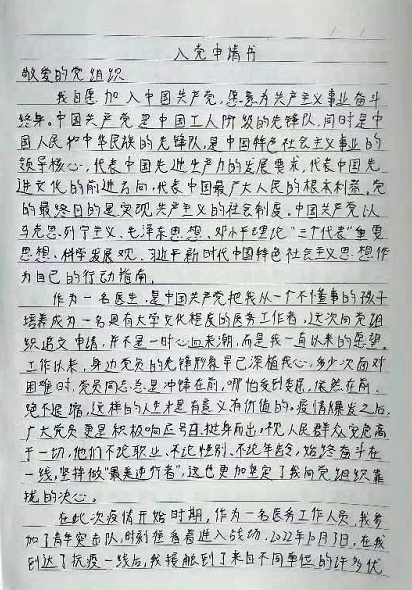 入党申请书
敬爱的党组织
我自愿加入中国共产党,愿意为共产主义事业奋斗
终身。中国共产党是中国工人阶级的先锋队,同时是中
国人民和中华民族的先锋队,是中国特色社会主义事业的
领导核心,代表中国先进生产力的发展要求,代表中国先
进文化的前进方向,代表中国最广大人民的根本利益。党
的最终目的是实现共产主义的社会制度。中国共产党以
马克思列宁主义、毛泽东思想、邓小平理论、"三个代表"重要
思想、科学发展观、习近平新时代中国特色社会主义思想作
为自己的行动指南。
作为一名医生,是中国共产党把我从一个不懂事的孩子
培养成为一名具有大学文化程度的医务工作者,这次向党组
织递交申请,并不是一时心血来潮,而是我一直以来的愿望。
工作以来,身边党员的先锋形象早已深植我心,多少次面对
困难时,党员同志总是冲锋在前,哪怕受到委屈,依然在前、
绝不退缩,这样的人生才是有意义有价值的。疫情爆发之后,
广大党员更是积极响应号召,挺身而出,视人民群众安危高
于一切,他们不论职业、不论性别、不论年龄,始终奋斗在
一线,坚持做"最美逆行者",这也更加坚定了我向党组织靠
拢的决心。
在此次疫情开始时期,作为一名医务工作人员,我参
加了青年突击队,时刻准备着进入战场,2022年10月3日,在我
到达了抗疫一线后,我接触到了来自不同单位的许多优